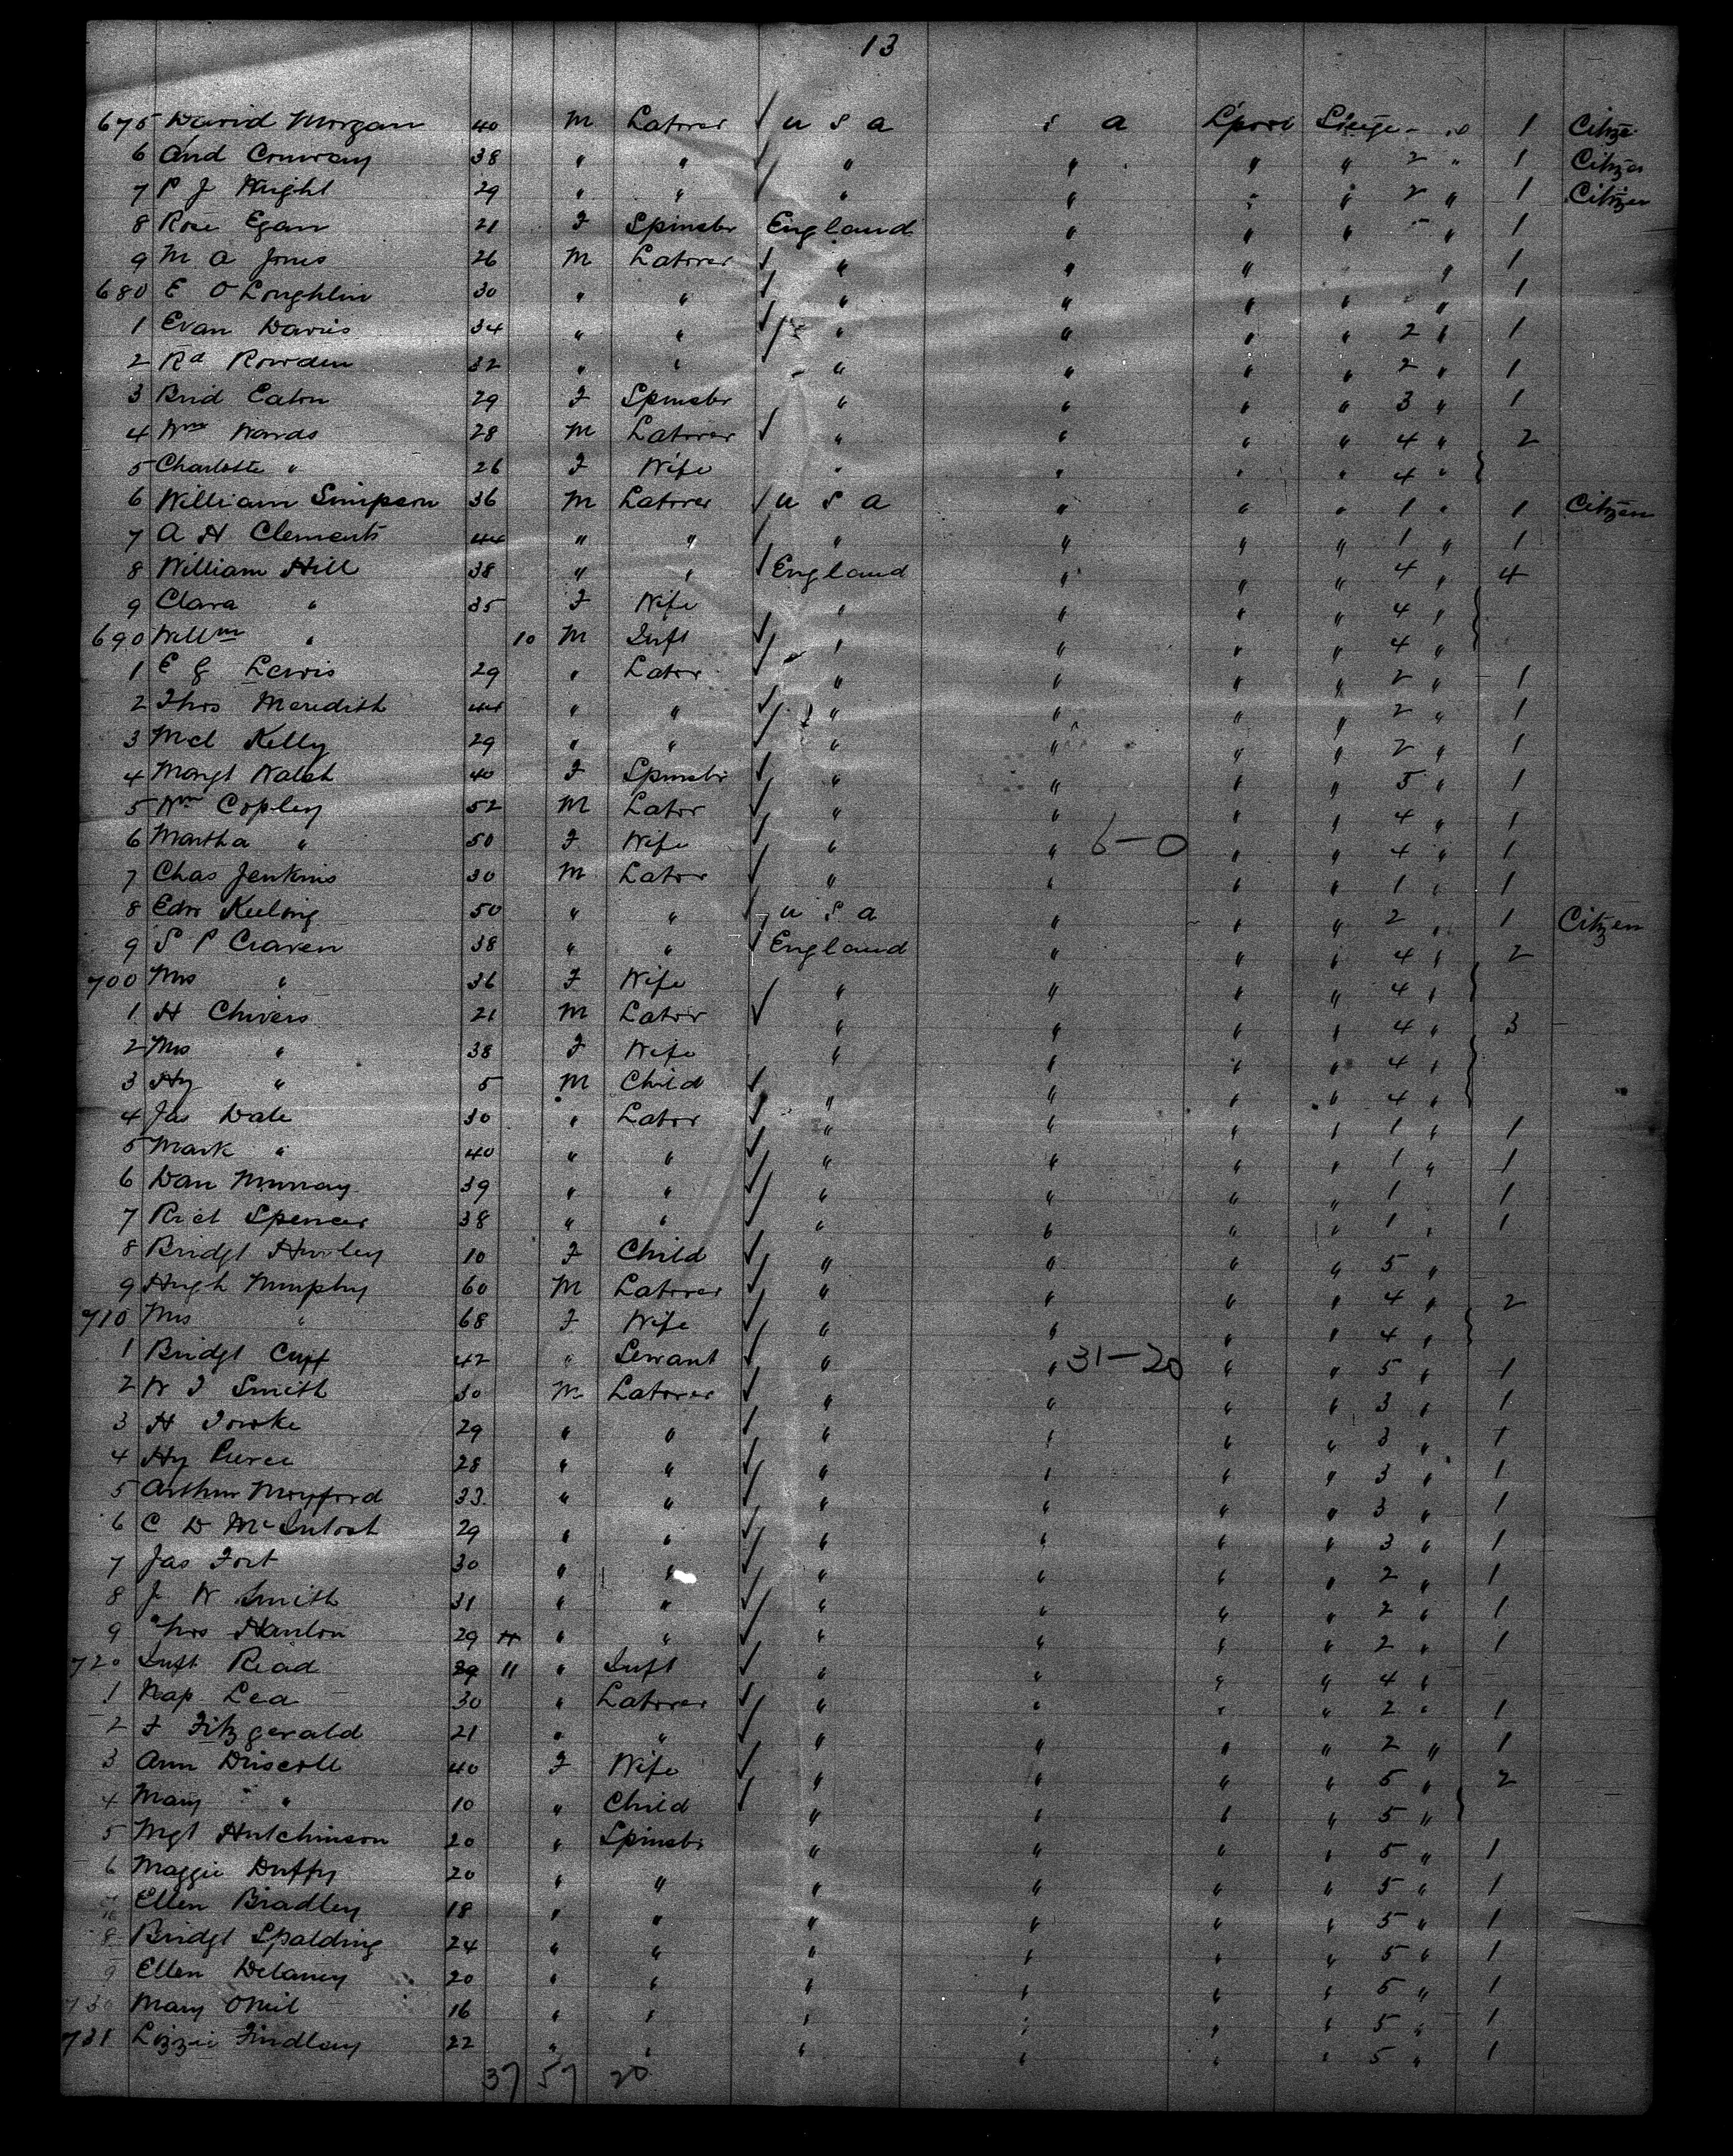 13
675 David Morgan 40 M Laborer ✓ U S A " a L'pool Steege 1 Citize
6 And Conway 38 " " ✓ " " " " 2 " 1 Citizen
7 P J Wright 29 " " ✓ " " " " 2 " 1 Citizen
8 Rose Egan 21 F Spinster England " " " " 1
9 M A Jones 26 M Laborer ✓ " " " " 1
680 E O Loughlin 30 " " ✓ " " " " " 1
1 Evan Davies 34 " " ✓ " " " " 2 " 1
2 Rd Rowden 32 " " " " " " 2 " 1
3 Brid Eaton 29 F Spinster " " " " 3 " 1
4 Wm Wards 28 M Laborer ✓ " " " " 4 " 2
5 Charlotte " 26 F Wife " " " " 4 "
6 William Simpson 36 M Laborer ✓ U S A " " " 1 " 1 Citizen
7 A H Clements 44 " " ✓ " " " " 1 " 1
8 William Hill 38 " " ✓ England " " " 4 " 4
9 Clara " 35 F Wife " " " " 4 "
690 Willm " 10 M Inft ✓ " " " " 4 "
1 E G Lewis 29 " Labor ✓ " " " " 2 " 1
2 Thos Meredith 44 " " ✓ " " " " 2 " 1
3 Mcl Kelly 29 " " ✓ " " " " 2 " 1
4 Margt Walsh 40 F Spinstr ✓ " " " " 5 " 1
5 Wm Copley 52 M Labor ✓ " " " " 4 " 1
6 Martha " 50 F Wife ✓ " " 6-0 " " 4 " 1
7 Chas Jenkins 30 M Labor ✓ " " " " 1 " 1
8 Edw Keeling 50 " " ✓ U S A " " " 2 " 1 Citizen
9 S P Craven 38 " " ✓ England " " " 4 " 2
700 Mrs " 36 F Wife " " " " 4 "
1 H Chivers 21 M Labor ✓ " " " " 4 " 3
2 Mrs " 38 F Wife " " " " 4 "
3 Hy " 5 M Child ✓ " " " " 4 "
4 Jas Dale 30 " Labor ✓ " " " " 1 " 1
5 Mark " 40 " " ✓ " " " " 1 " 1
6 Dan Murray 39 " " ✓ " " " " 1 1
7 Rich Spencer 38 " " ✓ " " " " 1 " 1
8 Bridgt Hurley 10 F Child ✓ " " " " 5 "
9 Hugh Murphy 60 M Laborer ✓ " " " " 4 " 2
710 Mrs " 68 F Wife ✓ " " " " 4 "
1 Bridgt Cuff 42 " Servant ✓ " " 31-20 " " 5 " 1
2 W J Smith 30 M Laborer ✓ " " " " 3 " 1
3 H Fowke 29 " " ✓ " " " " 3 " 1
4 Hy Pierce 28 " " ✓ " " " " 3 " 1
5 Arthur Moyford 33 " " ✓ " " " " 3 " 1
6 C D McIntosh 29 " " ✓ " " " " 3 " 1
7 Jas Fort 30 " " ✓ " " " " 2 " 1
8 J W Smith 31 " " ✓ " " " " 2 " 1
9 Thos Hanlon 29 " " ✓ " " " " 2 " 1
720 Inft Read 11 " Inft ✓ " " " " 4 "
1 Nap Lea 30 " Laborer ✓ " " " " 2 " 1
2 F Fitzgerald 21 " " ✓ " " " " 2 " 1
3 Ann Driscoll 40 F Wife ✓ " " " " 5 " 2
4 Mary " 10 " Child ✓ " " " " 5 "
5 Mgt Hutchinson 20 " Spinstr " " " " 5 " 1
6 Maggie Duffy 20 " " " " " " 5 " 1
7 Ellen Bradley 18 " " " " " " 5 " 1
8 Bridgt Spalding 24 " " " " " " 5 " 1
9 Ellen Delaney 20 " " " " " " 5 " 1
730 Mary ONeil 16 " " " " " " 5 " 1
731 Lizzie Findlay 22 " " " " " " 5 " 1
37 57 20